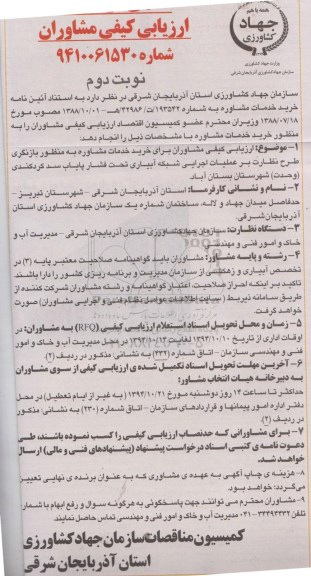 همه با هم
جهاد
کشاورزی
وزارت جهاد کشاورزی
سازمان جهاد کشاورزی آذربایجان شرقی
ارزیابی کیفی مشاوران
شماره ۹۴۱۰۰۶۱۵۳۰
نوبت دوم
سازمان جهاد کشاورزی استان آذربایجان شرقی در نظر دارد به استناد آئین نامه
خرید خدمات مشاوره به شماره ۱۹۳۵۴۲/ت/۴۲۹۸۶هـ - ۱۳۸۸/۱۰/۰۱ مصوب مورخ
۱۳۸۸/۰۷/۱۸ وزیران محترم عضو کمیسیون اقتصاد ارزیابی کیفی مشاوران را به
منظور خرید خدمات مشاوره با مشخصات ذیل را انجام بدهد:
۱- موضوع: ارزیابی کیفی مشاوران برای خرید خدمات مشاوره به منظور بازنگری
طرح نظارت بر عملیات اجرایی شبکه آبیاری تحت فشار پایاب سد کردکندی
(وحدت) شهرستان بستان آباد.
۲- نام و نشانی کارفرما: استان آذربایجان شرقی - شهرستان تبریز -
حدفاصل میدان جهاد و لاله، ساختمان شماره یک سازمان جهاد کشاورزی استان
آذربایجان شرقی.
۳- دستگاه نظارت: سازمان جهاد کشاورزی استان آذربایجان شرقی - مدیریت آب و
خاک و امور فنی و مهندسی
۴- رشته و پایه مشاور: مشاوران باید گواهینامه صلاحیت معتبر پایه (۳) در
تخصص آبیاری و زهکشی از سازمان مدیریت و برنامه ریزی کشور را دارا باشند.
تاکید بر اینکه احراز صلاحیت اعتبار گواهینامه و رشته مشاوران شرکت کننده از
طریق سامانه ذیربط (سایت اطلاعات عوامل نظام فنی و اجرایی مشاوران) صورت
خواهد گرفت.
۵- زمان و محل تحویل اسناد استعلام ارزیابی کیفی (RFQ) به مشاوران: در
اوقات اداری از تاریخ ۱۳۹۴/۱۰/۱۰ لغایت ۱۳۹۴/۱۰/۱۴ در محل مدیریت آب و خاک و امور
فنی و مهندسی سازمان - اتاق شماره (۲۳۲) به نشانی: مذکور در ردیف (۲)
۶- آخرین مهلت تحویل اسناد تکمیل شده ی ارزیابی کیفی از سوی مشاوران
به دبیرخانه هیات انتخاب مشاور:
حداکثر تا ساعت ۱۴ روز دوشنبه مورخ ۱۳۹۴/۱۰/۲۱ (به غیر از ایام تعطیل) در محل
دفتر اداره امور پیمانها و قراردادهای سازمان - اتاق شماره (۲۳۰) به نشانی: مذکور
در ردیف (۲).
۷- برای مشاورانی که حدنصاب ارزیابی کیفی را کسب نموده باشند، طی
دعوت نامه ی کتبی اسناد درخواست پیشنهاد (پیشنهادهای فنی و مالی) ارسال
خواهد شد.
۸- هزینه ی چاپ آگهی به عهده ی مشاوری که به عنوان برنده ی نهایی تعیین
می‌گردد؛ خواهد بود.
۹- مشاوران محترم می توانند جهت پاسخگوئی به هرگونه سوال و رفع ابهام با شماره
تلفن ۳۳۴۹۴۳۳۲-۰۴۱ مدیریت آب و خاک و امور فنی و مهندسی تماس حاصل نمایند.
کمیسیون مناقصات سازمان جهاد کشاورزی
استان آذربایجان شرقی